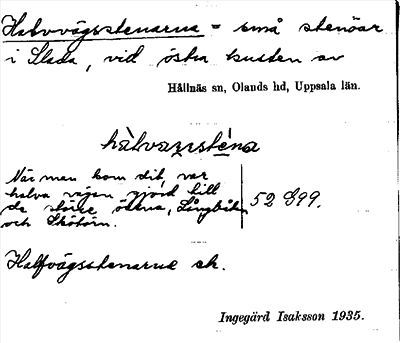 Halvvägsstenarna = små stenöar
i Slada, vid östra kusten av
Hållnäs sn, Olands hd, Uppsala län.
När man kom dit, var
halva vägen gjord till
de större öarna, Långbåken
och Skötörn.
52 899.
Halfvägsstenarne ek.
Ingegärd Isaksson 1935.